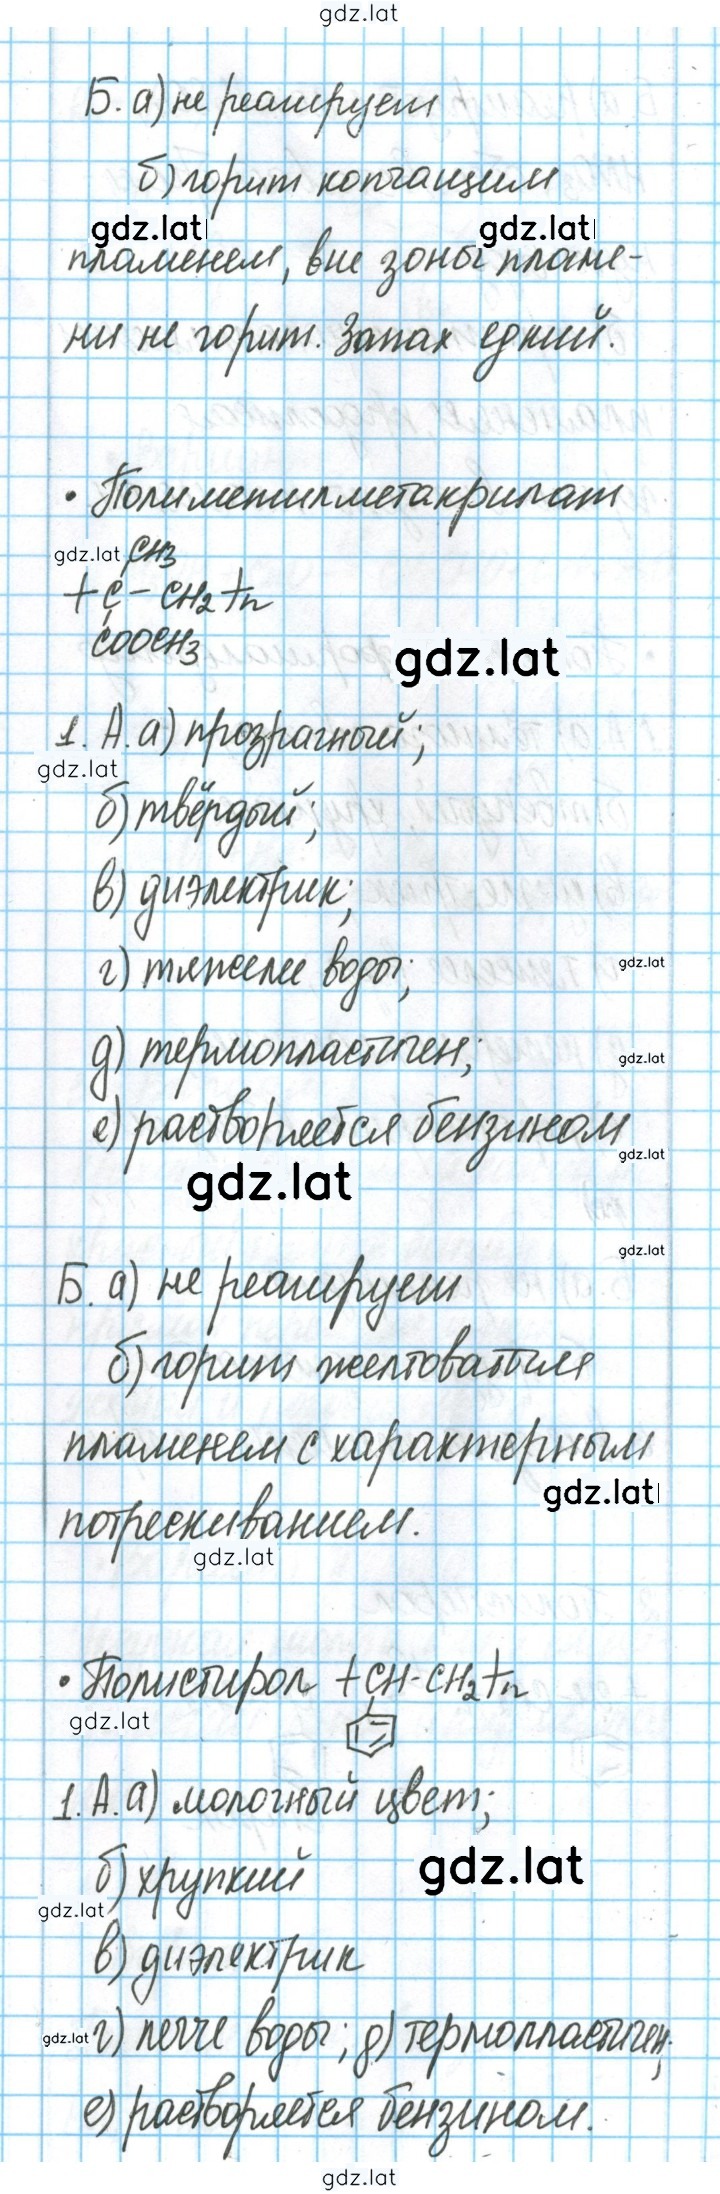 gdz.lat
Б. а) не реагирует
б) горит коптящим
gdz.lat gdz.lat
пламенем, вне зоны пламе-
ни не горит. Запах едкий.
• Полиметилметакрилат
gdz.lat CH3
+C-CH2+n
COOCH3
gdz.lat
1. А. а) прозрачный;
gdz.lat
б) твёрдый;
в) диэлектрик;
г) тяжелее воды;
gdz.lat
д) термопластичен;
gdz.lat
е) растворяется бензином
gdz.lat
gdz.lat
gdz.lat
Б. а) не реагирует
б) горит желтоватым
пламенем с характерным
gdz.lat
потрескиванием.
gdz.lat
• Полистирол +CH-CH2+n
gdz.lat
1. А. а) молочный цвет;
gdz.lat
б) хрупкий
gdz.lat
в) диэлектрик
gdz.lat г) легче воды; д) термопластичен;
е) растворяется бензином.
gdz.lat